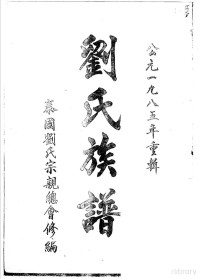 公元一九八五年重輯
劉氏族譜
泰國劉氏宗親總會修編